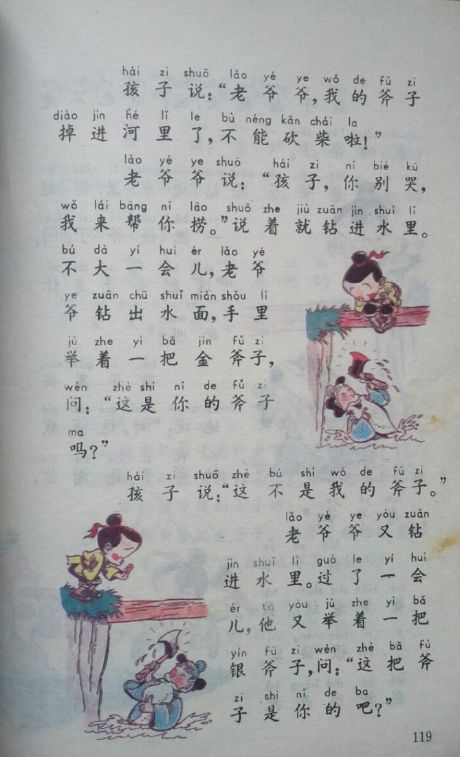 hái zi shuō lǎo yé ye wǒ de fǔ zi
孩子说：“老爷爷，我的斧子
diào jìn hé lǐ le bù néng kǎn chái la
掉进河里了，不能砍柴啦！”
lǎo yé ye shuō hái zi nǐ bié kū
老爷爷说：“孩子，你别哭，
wǒ lái bāng nǐ lāo shuō zhe jiù zuān jìn shuǐ lǐ
我来帮你捞。”说着就钻进水里。
bú dà yí huì ér lǎo yé
不大一会儿，老爷
ye zuān chū shuǐ miàn shǒu lǐ
爷钻出水面，手里
jǔ zhe yì bǎ jīn fǔ zi
举着一把金斧子，
wèn zhè shì nǐ de fǔ zi
问：“这是你的斧子
ma
吗？”
hái zi shuō zhè bú shì wǒ de fǔ zi
孩子说：“这不是我的斧子。”
lǎo yé ye yòu zuān
老爷爷又钻
jìn shuǐ lǐ guò le yí huì
进水里。过了一会
ér tā yòu jǔ zhe yì bǎ
儿，他又举着一把
yín fǔ zi wèn zhè bǎ fǔ
银斧子，问：“这把斧
zi shì nǐ de ba
子是你的吧？”
119